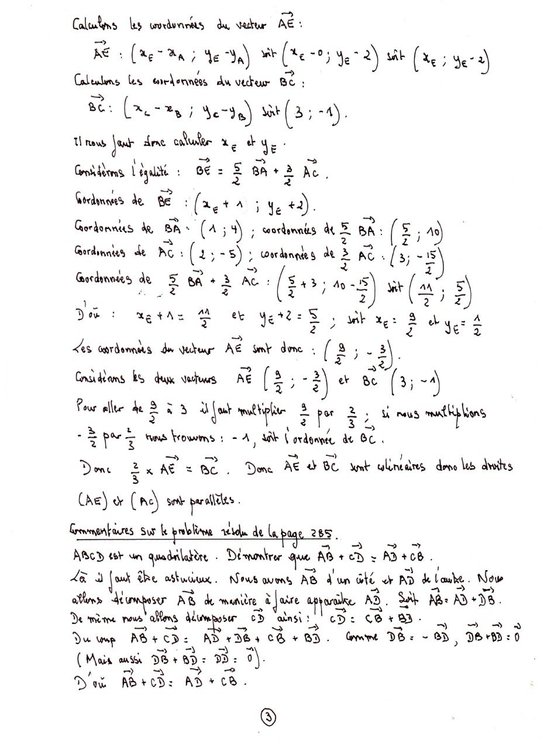 Calculons les coordonnées du vecteur \vec{AE} :
\vec{AE} : (x_E - x_A ; y_E - y_A) soit (x_E - 0 ; y_E - 2) soit (x_E ; y_E - 2)
Calculons les coordonnées du vecteur \vec{BC} :
\vec{BC} : (x_C - x_B ; y_C - y_B) soit (3 ; -1).
Il nous faut donc calculer x_E et y_E.
Considérons l'égalité : \vec{BE} = \frac{5}{2} \vec{BA} + \frac{3}{2} \vec{AC}.
Coordonnées de \vec{BE} : (x_E + 1 ; y_E + 2).
Coordonnées de \vec{BA} : (1 ; 4) ; coordonnées de \frac{5}{2} \vec{BA} : (\frac{5}{2} ; 10)
Coordonnées de \vec{AC} : (2 ; -5) ; coordonnées de \frac{3}{2} \vec{AC} : (3 ; -\frac{15}{2})
Coordonnées de \frac{5}{2} \vec{BA} + \frac{3}{2} \vec{AC} : (\frac{5}{2} + 3 ; 10 - \frac{15}{2}) soit (\frac{11}{2} ; \frac{5}{2})
D'où : x_E + 1 = \frac{11}{2} et y_E + 2 = \frac{5}{2} ; soit x_E = \frac{9}{2} et y_E = \frac{1}{2}
Les coordonnées du vecteur \vec{AE} sont donc : (\frac{9}{2} ; -\frac{3}{2}).
Considérons les deux vecteurs \vec{AE} (\frac{9}{2} ; -\frac{3}{2}) et \vec{BC} (3 ; -1)
Pour aller de \frac{9}{2} à 3 il faut multiplier \frac{9}{2} par \frac{2}{3} ; si nous multiplions
-\frac{3}{2} par \frac{2}{3} nous trouvons : -1, soit l'ordonnée de \vec{BC}.
Donc \frac{2}{3} × \vec{AE} = \vec{BC}. Donc \vec{AE} et \vec{BC} sont colinéaires donc les droites
(AE) et (AC) sont parallèles.
Commentaires sur le problème résolu de la page 285.
ABCD est un quadrilatère. Démontrer que \vec{AB} + \vec{CD} = \vec{AD} + \vec{CB}.
Là il faut être astucieux. Nous avons \vec{AB} d'un côté et \vec{AD} de l'autre. Nous
allons décomposer \vec{AB} de manière à faire apparaître \vec{AD}. Soit \vec{AB} = \vec{AD} + \vec{DB}.
De même nous allons décomposer \vec{CD} ainsi : \vec{CD} = \vec{CB} + \vec{BD}.
Du coup \vec{AB} + \vec{CD} = \vec{AD} + \vec{DB} + \vec{CB} + \vec{BD}. Comme \vec{DB} = -\vec{BD}, \vec{DB} + \vec{BD} = \vec{0}
(Mais aussi \vec{DB} + \vec{BD} = \vec{DD} = \vec{0}).
D'où \vec{AB} + \vec{CD} = \vec{AD} + \vec{CB}.
3